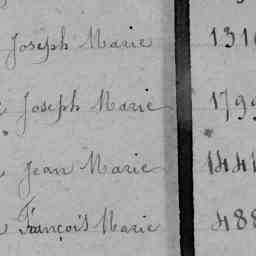 Joseph Marie 131
Joseph Marie 1799
Jean Marie 1441
François Marie 488